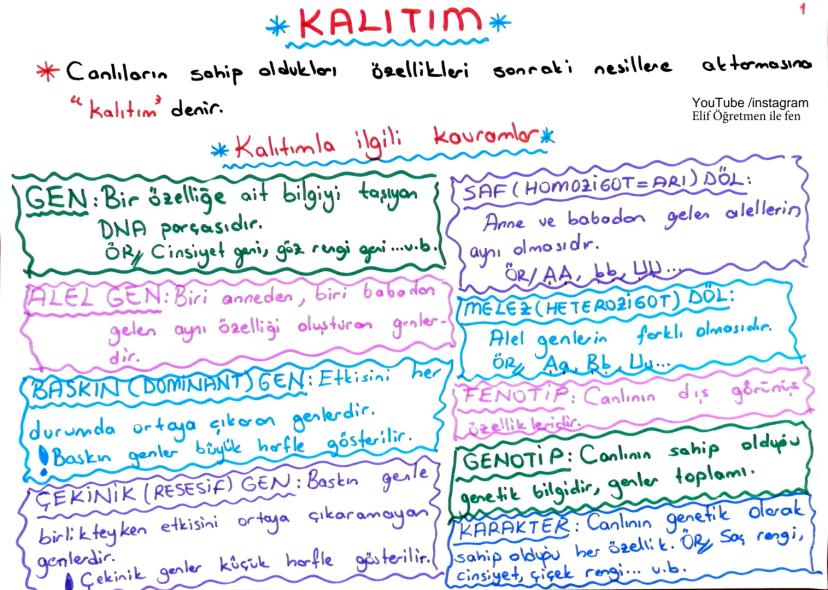 1
* KALITIM *
* Canlıların sahip oldukları özellikleri sonraki nesillere aktarmasına
"kalıtım" denir.
YouTube /instagram
Elif Öğretmen ile fen
* Kalıtımla ilgili kavramlar *
GEN: Bir özelliğe ait bilgiyi taşıyan
DNA parçasıdır.
ÖR// Cinsiyet geni, göz rengi geni...v.b.
ALEL GEN: Biri anneden, biri babadan
gelen aynı özelliği oluşturan genler-
dir.
BASKIN (DOMİNANT) GEN: Etkisini her
durumda ortaya çıkaran genlerdir.
! Baskın genler büyük harfle gösterilir.
ÇEKİNİK (RESESİF) GEN: Baskın genle
birlikteyken etkisini ortaya çıkaramayan
genlerdir.
! Çekinik genler küçük harfle gösterilir.
SAF (HOMOZİGOT = ARI) DÖL:
Anne ve babadan gelen alellerin
aynı olmasıdır.
ÖR/ AA, bb, UU...
MELEZ (HETEROZİGOT) DÖL:
Alel genlerin farklı olmasıdır.
ÖR// Aa, Bb, Uu...
FENOTİP: Canlının dış görünüş
özellikleridir.
GENOTİP: Canlının sahip olduğu
genetik bilgidir, genler toplamı.
KARAKTER: Canlının genetik olarak
sahip olduğu her özellik. ÖR// Saç rengi,
cinsiyet, çiçek rengi... v.b.